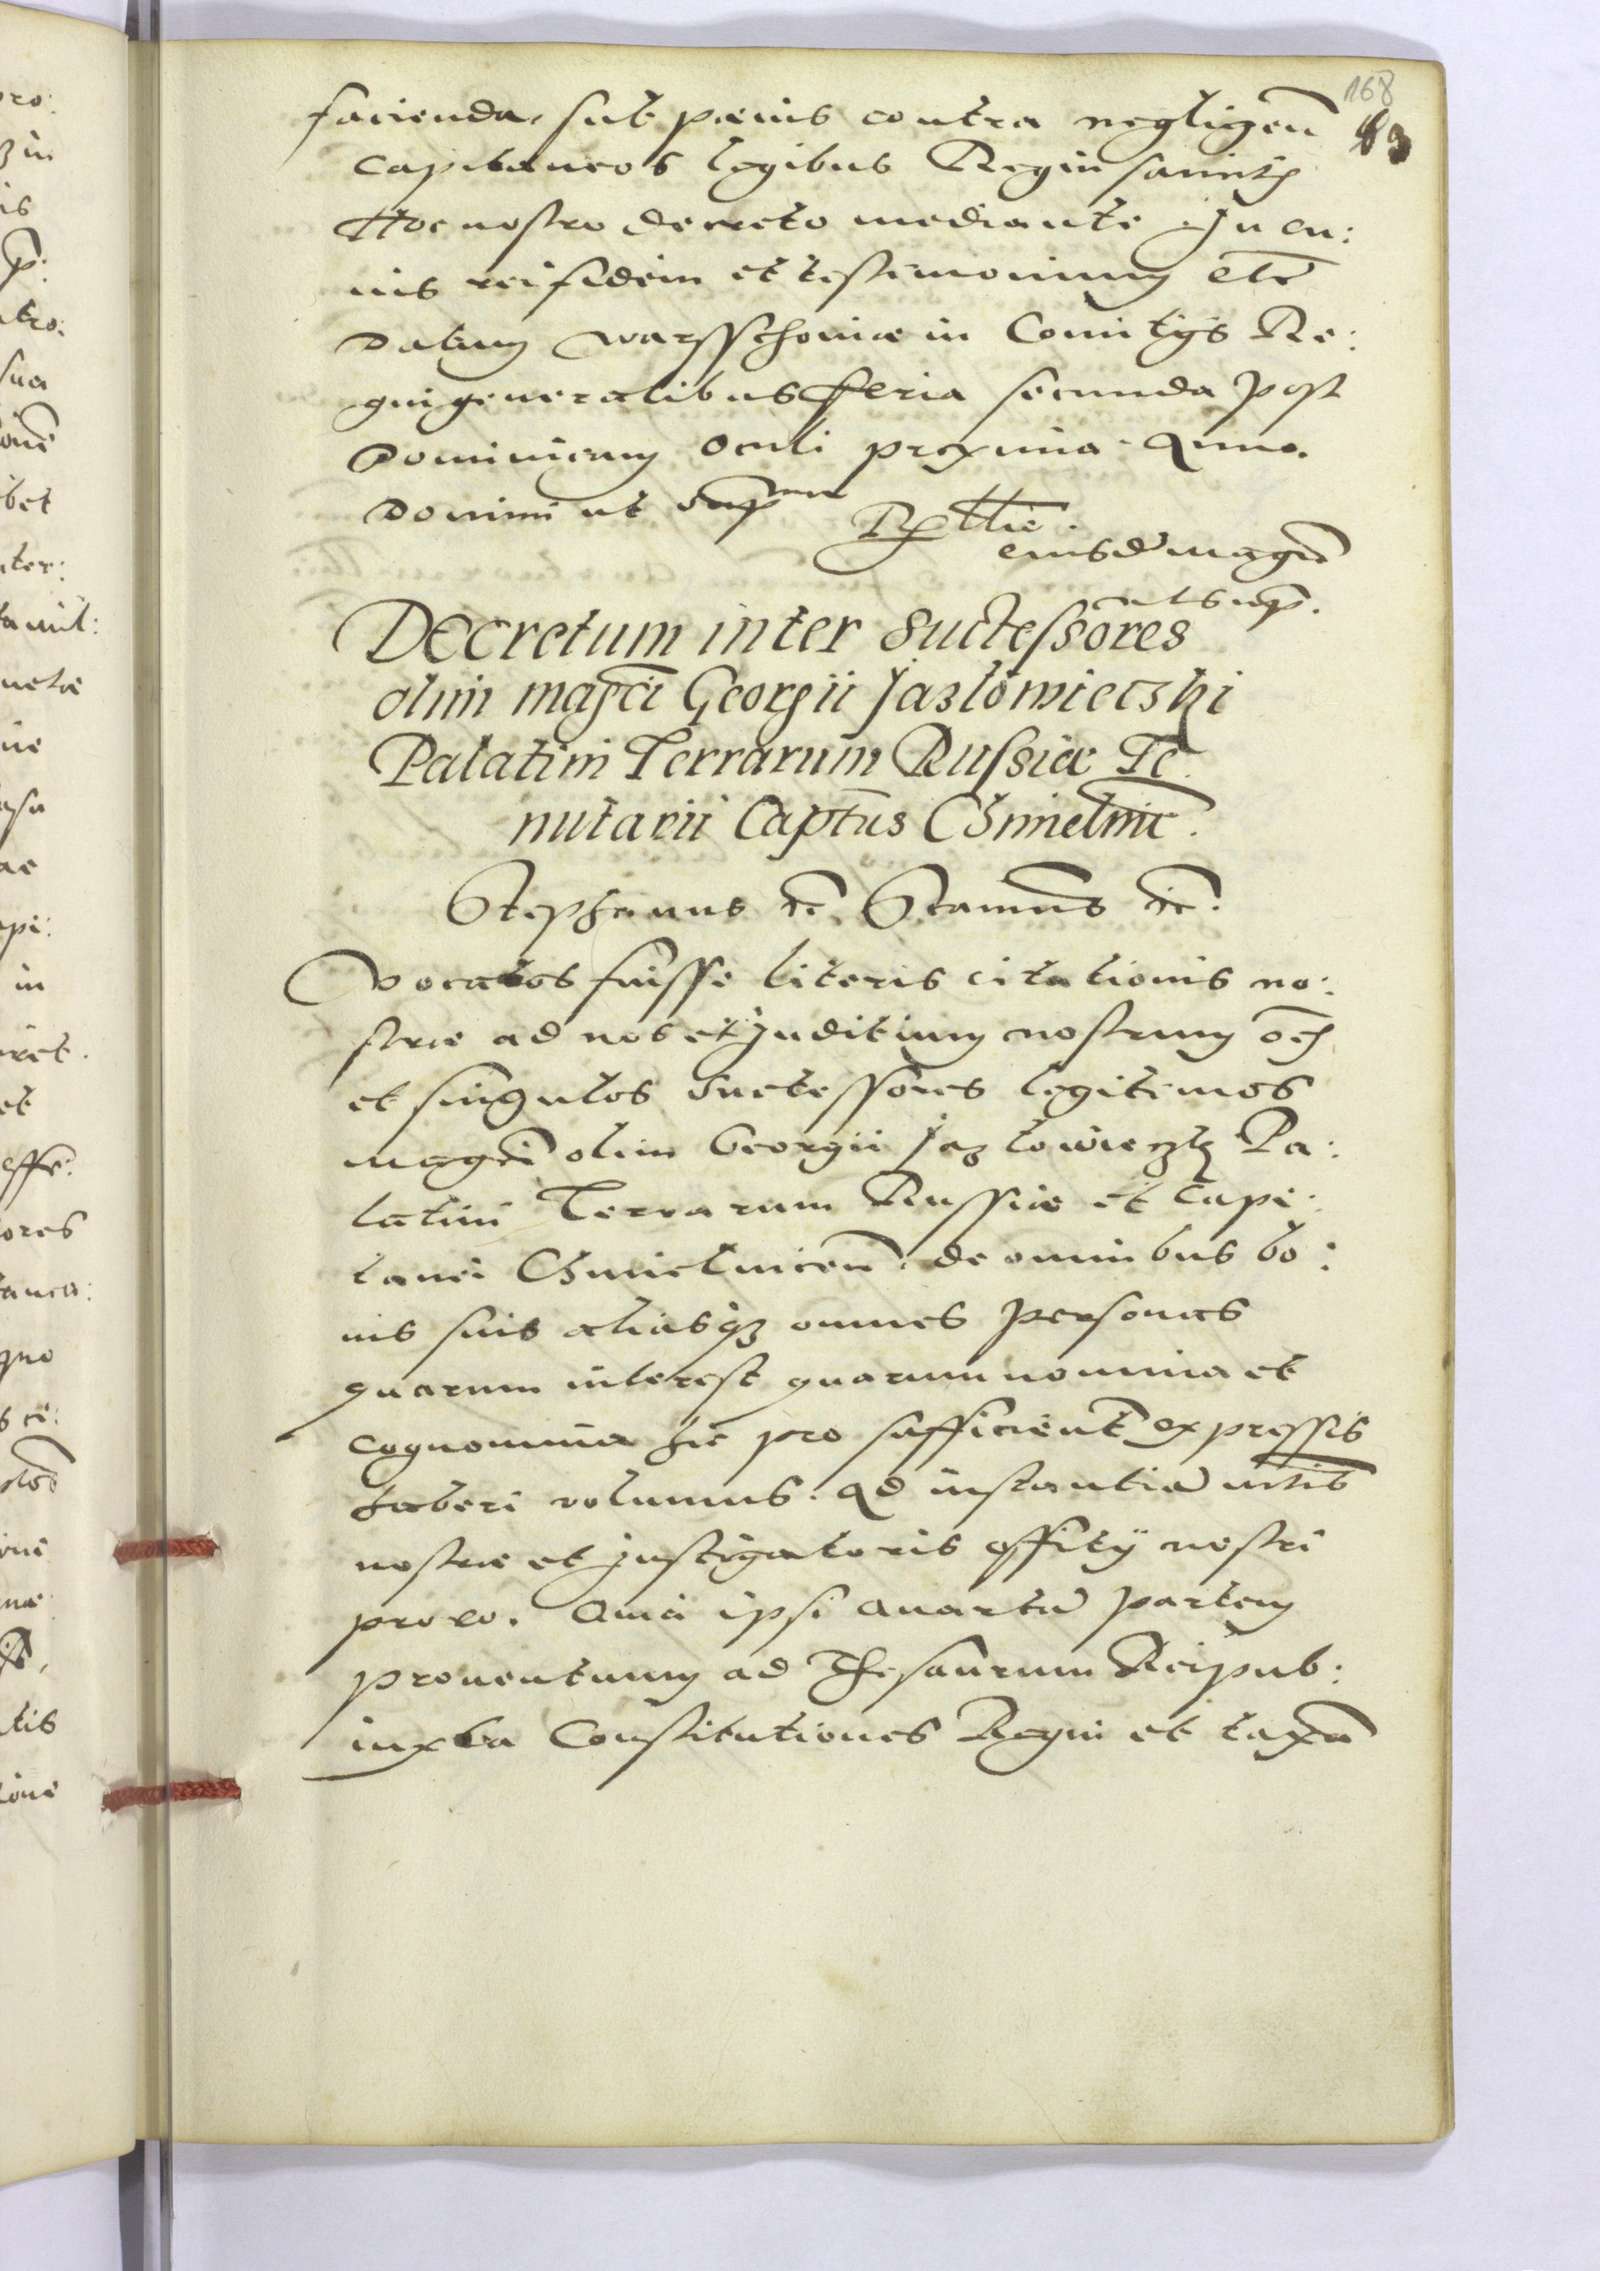 168
facienda, sub pænis contra negligen̄
83
Capitaneos legibus Regni sancitis
Hoc nostro decreto mediante. In cu:
ius rei fidem et testimonium etc̄
Datum Warsschoviæ in Comitÿs Re:
gni generalibus feria secunda post
Dominicam Oculi proxima. Anno.
Domini ut supra
Rtio.
eiusdē magci
ut sup.
Decretum inter Suctessores
olim magci Georgii Jazlowiecski
Palatini Terrarum Russiæ Te
nutarii Captus Chmielnic.
Stephanus etc. Scamus etc.
Vocatos fuisse literis citationis no:
stræ ad nos et Juditium nostrum oēs
et singulos Suctessores legitimos
magci olim Georgii Jazlowieczky Pa:
latini Terrarum Russiæ et Capi:
tanei Chmielnicen̄. de omnibus bo:
nis suis aliasqz omnes personas
quarum interest quarum nomina et
cognomina hic pro sufficient̄ expressis
haberi volumus. ad instantiā
nostræ et Instigatoris offitÿ nostri
proco. Quia ipsi Quartā partem
proventuum ad Thesaurum Reipub:
iuxta Constitutiones Regni et taxā